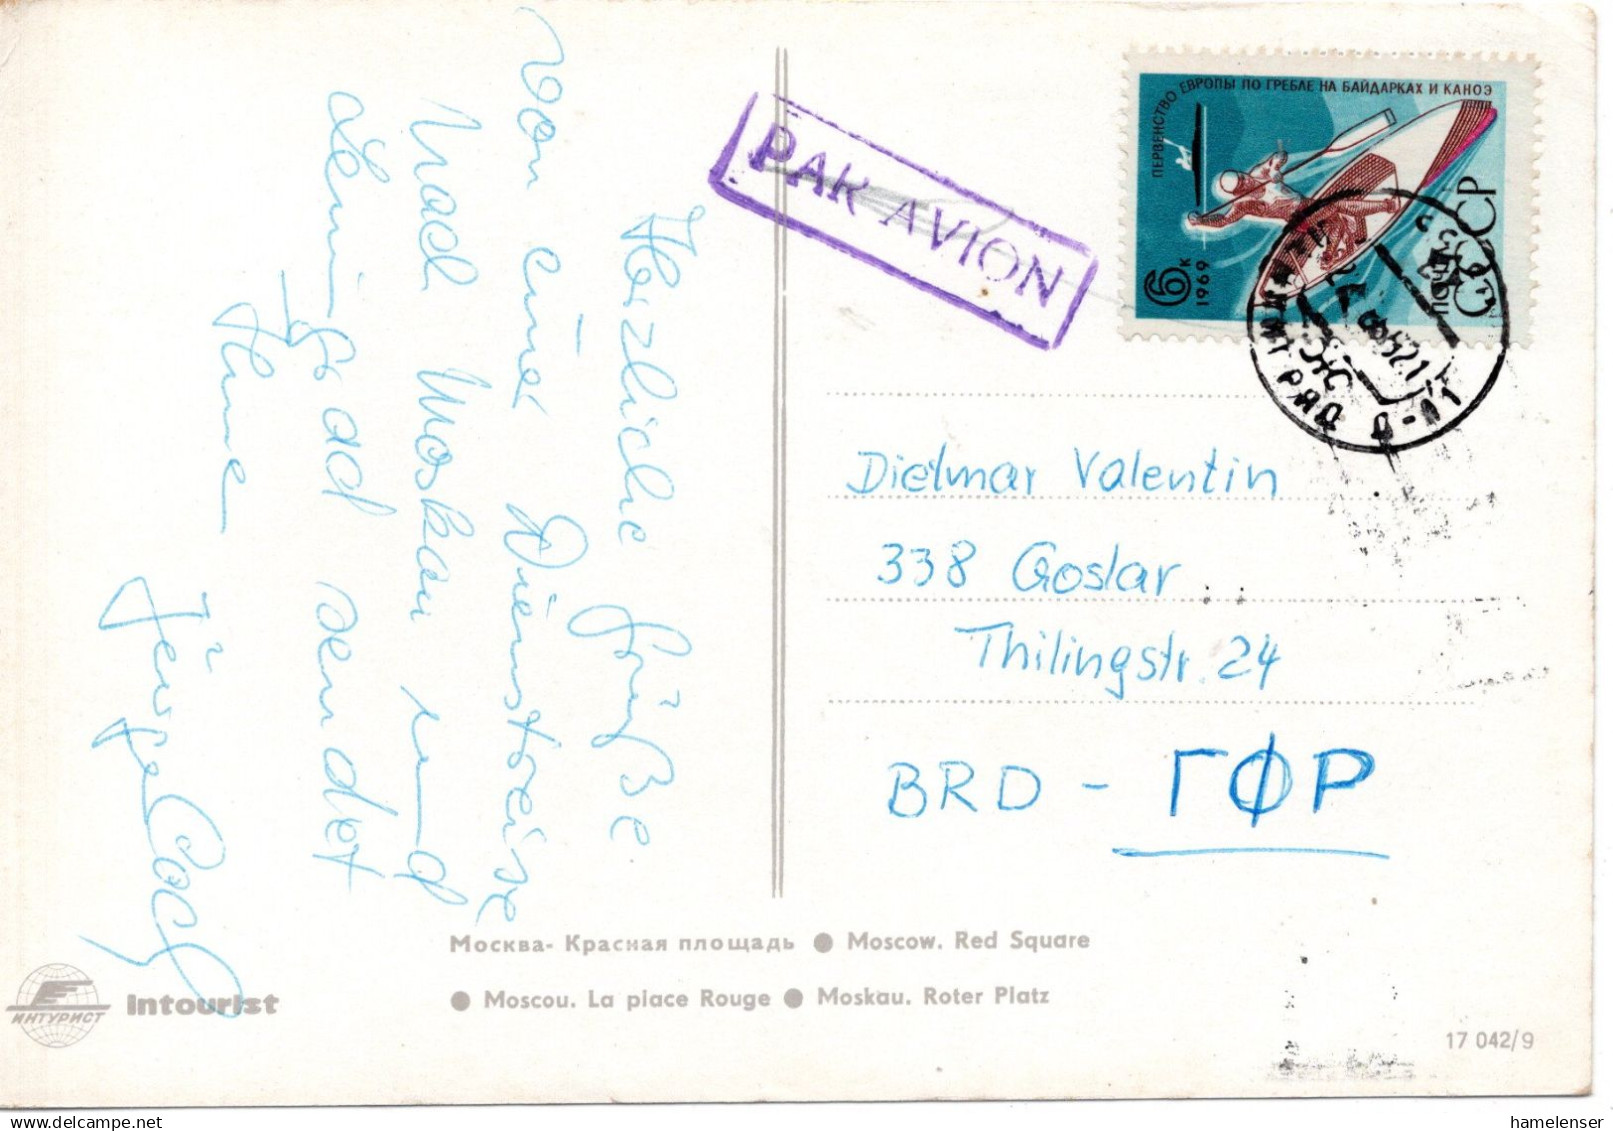 Herzliche Grüße
von einer Dienstreise
nach Moskau und
Leningrad sendet
Ihnen
PAR AVION
ПЕРВЕНСТВО ЕВРОПЫ ПО ГРЕБЛЕ НА БАЙДАРКАХ И КАНОЭ
6к
1969
ПОЧТА
СССР
Dietmar Valentin
338 Goslar
Thilingstr. 24
BRD - ГФР
Москва- Красная площадь ● Moscow. Red Square
● Moscou. La place Rouge ● Moskau. Roter Platz
ИНТУРИСТ
Intourist
17 042/9
hamelenser